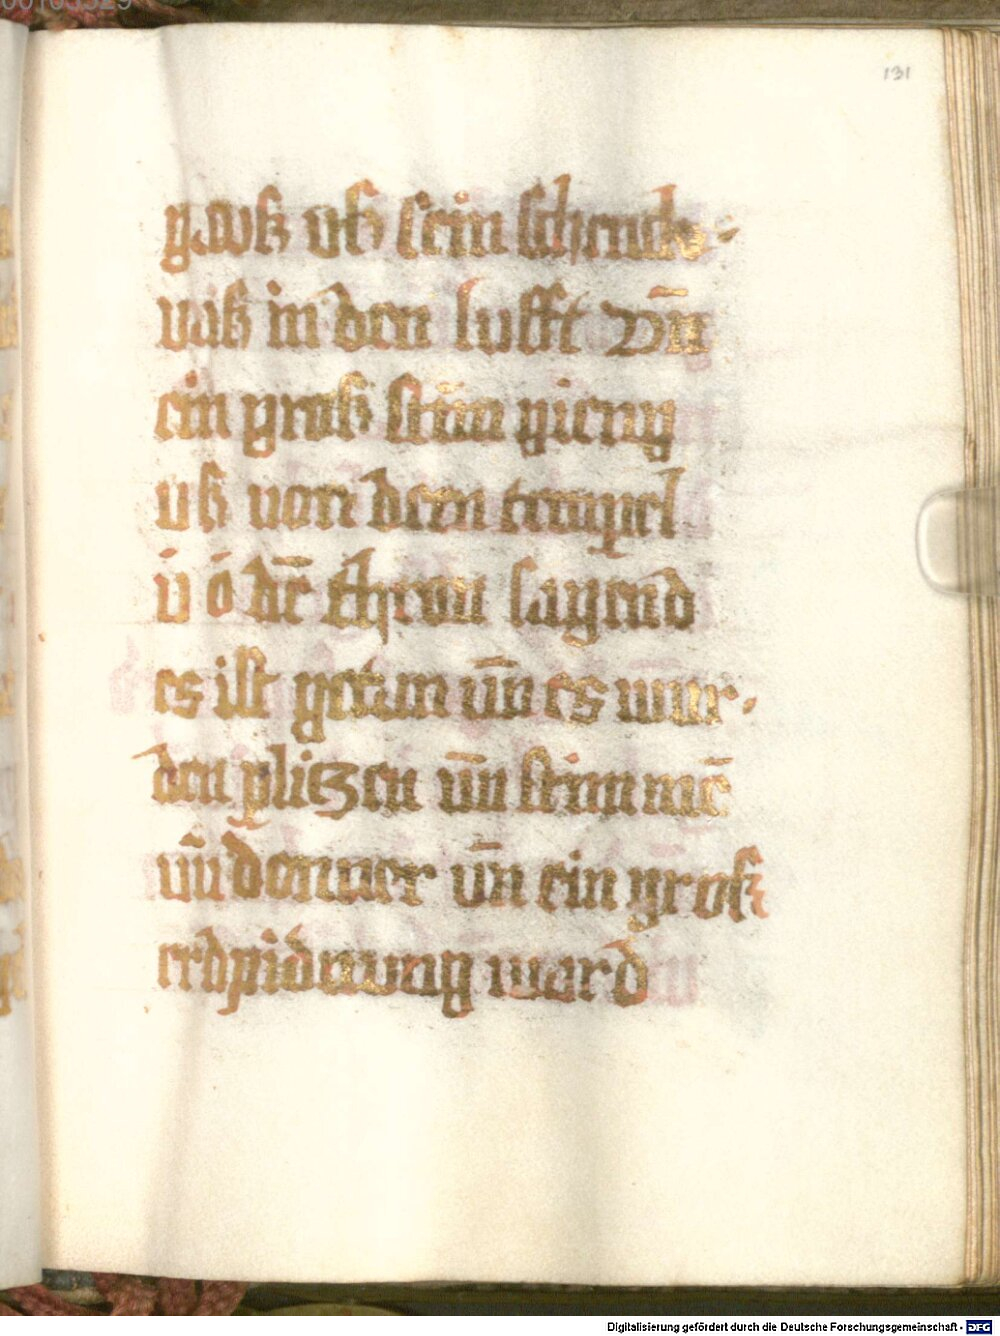 131
goß uß sein schenck-
vaß in den lufft Vn̄
ein groß stim̄ gieng
uß von dem tempel
v̇ o dē thron sagend
es ist getan vn̄ es wur-
den plitzen vn̄ stimmē
vn̄ donner vn̄ ein groß
erdpidmung ward
Digitalisierung gefördert durch die Deutsche Forschungsgemeinschaft - DFG